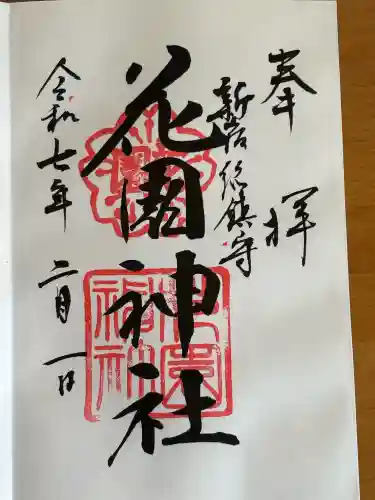 奉拝
新宿総鎮守
花園神社
令和七年 二月一日